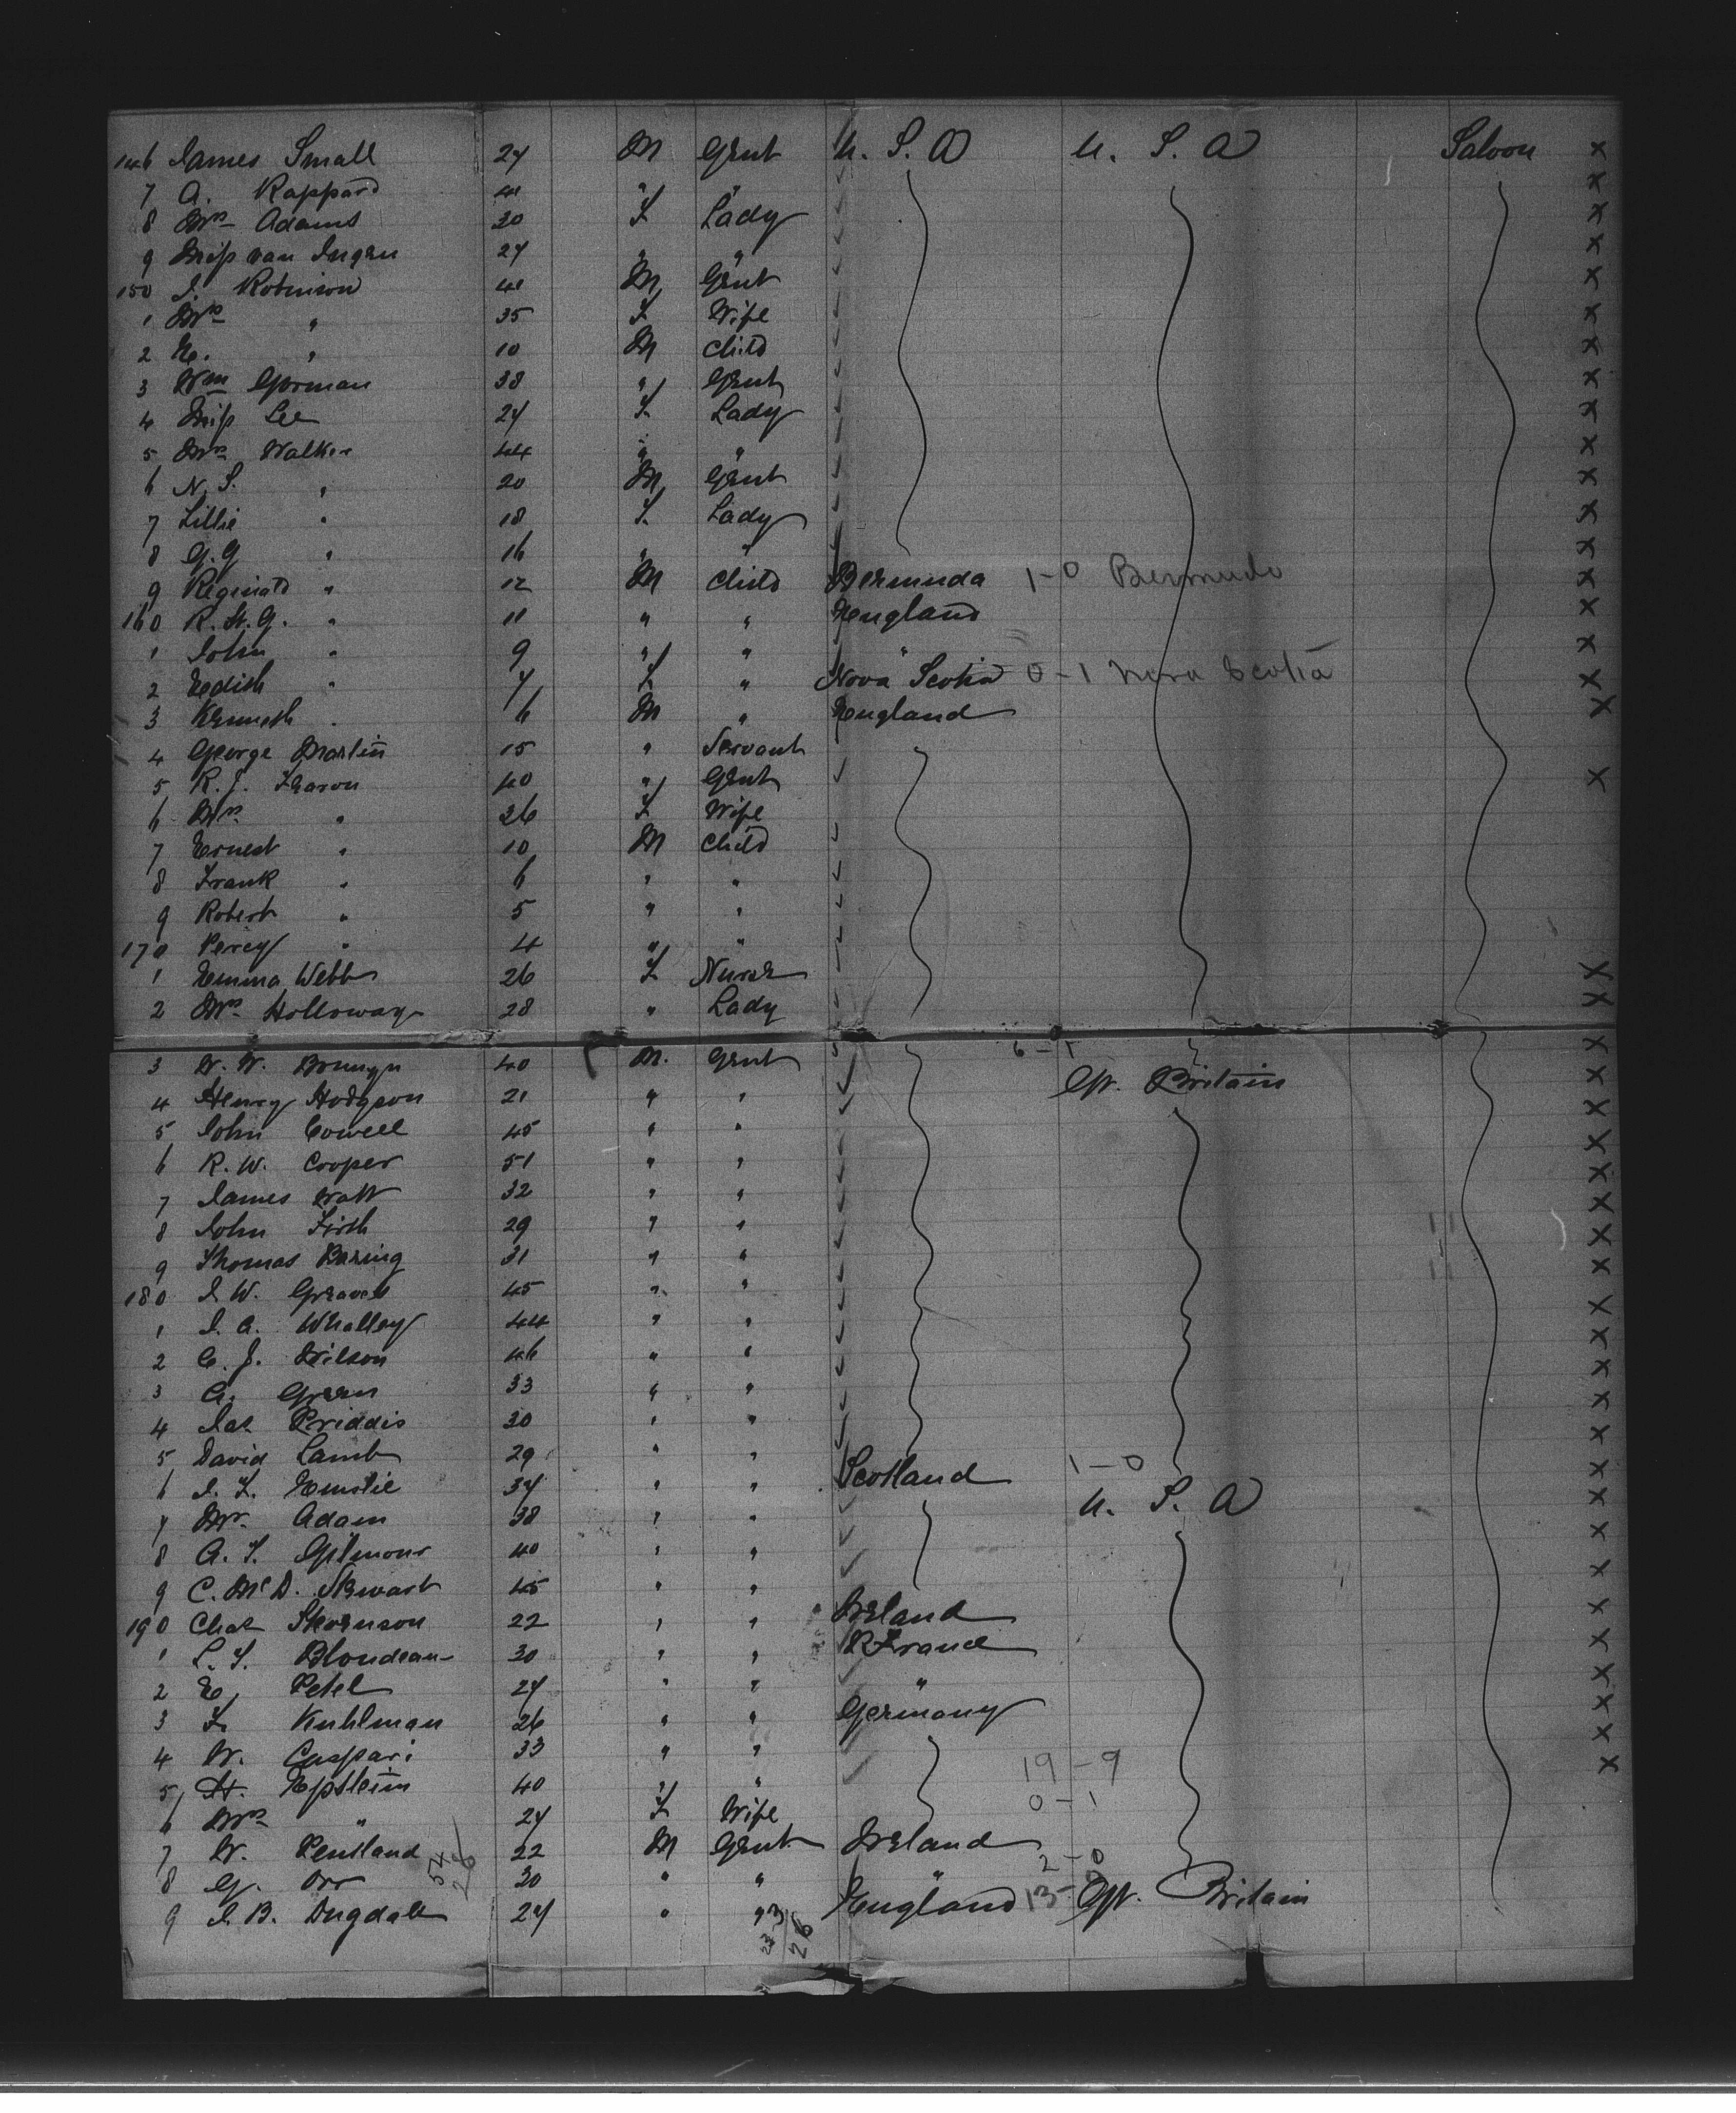 146 James Small 24 M Gent U. S. A U. S. A Saloon x
7 A. Rappard 41 " " x
8 Mrs Adams 30 F Lady x
9 Miss van Ingen 24 " " x
150 J. Robinson 41 M Gent x
1 Mrs " 35 F Wife x
2 E. " 10 M Child x
3 Wm Gorman 38 " Gent x
4 Miss Lee 24 F Lady x
5 Mrs Walker 44 " " x
6 N. S. " 20 M Gent x
7 Lillie " 18 F Lady x
8 G. G " 16 " " x
9 Reginald " 12 M Child Bermuda 1-0 Bermuda x
160 R. St. G. " 11 " " England x
1 John " 9 " " " x
2 Edith " 7 F " Nova Scotia 0-1 Nova Scotia x
3 Kenneth " 6 M " England x
4 George Martin 15 " Servant
5 R. J. Fearon 40 " Gent x
6 Mrs " 26 F Wife
7 Ernest " 10 M Child
8 Frank " 6 " "
9 Robert " 5 " "
170 Percy " 4 " "
1 Emma Webb 26 F Nurse x
2 Mrs Holloway 28 " Lady x
3 W. W. 40 M. Gent 6-1 x
4 Henry Hodgson 21 " " Gt. Britain x
5 John Cowell 45 " " x
6 R. W. Cooper 51 " " x
7 James Watt 32 " " x
8 John Firth 29 " " x
9 Thomas Baring 31 " " x
180 J. W. Graves 45 " " x
1 J. A. Whalley 44 " " x
2 C. J. Wilson 46 " " x
3 A. Green 33 " " x
4 Jas. Priddis 30 " " x
5 David Lamb 29 " " x
6 J. F. Emslie 34 " " Scotland 1-0 x
7 Mr. Adam 38 " " U. S. A x
8 A. T. Gilmour 40 " " x
9 C. McD. Stewart 45 " " x
190 Chas Stevenson 22 " " Ireland x
1 L. F. Blondeau 30 " " France x
2 E. Petel 24 " " " x
3 F. Kuhlman 26 " " Germany x
4 W. Caspari 33 " " x
5 H. Epstein 40 " " 19-9 x
6 Mrs " 24 F Wife 0-1
7 W. Pentland 22 M Gent Ireland
8 G. Orr 30 " " " 2-0
9 J. B. Dugdale 24 " " England 13- Gt. Britain
54
26
23 3
26